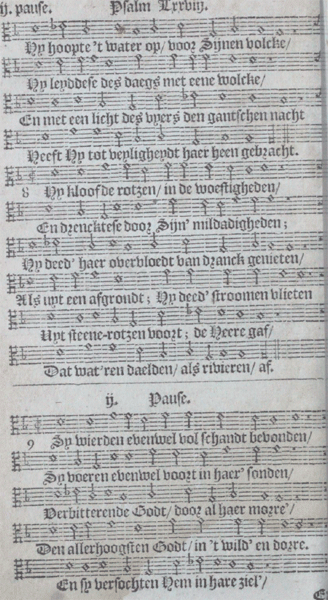 ij. pause. Psalm Lxxviij.
Hy hoopte 't water op/ voor Sijnen volcke/
Hy leyddese des daegs met eene wolcke/
En met een licht des vyers den gantschen nacht
Heeft Hy tot veyligheydt haer heen gebracht.
8 Hy kloofde rotzen/ in de woestigheden/
En drencktese door Sijn' mildadigheden;
Hy deed' haer overvloedt van dranck genieten/
Als uyt een afgrondt; Hy deed' stroomen vlieten
Uyt steene-rotzen voort; de Heere gaf/
Dat wat'ren daelden/ als rivieren/ af.
ij. Pause.
9 Sy wierden evenwel vol schandt bevonden/
Sy voeren evenwel voort in haer' sonden/
Verbitterende Godt/ door al haer morre'/
Den allerhoogsten Godt/ in 't wild' en dorre.
En sy versochten Hem in hare ziel'/